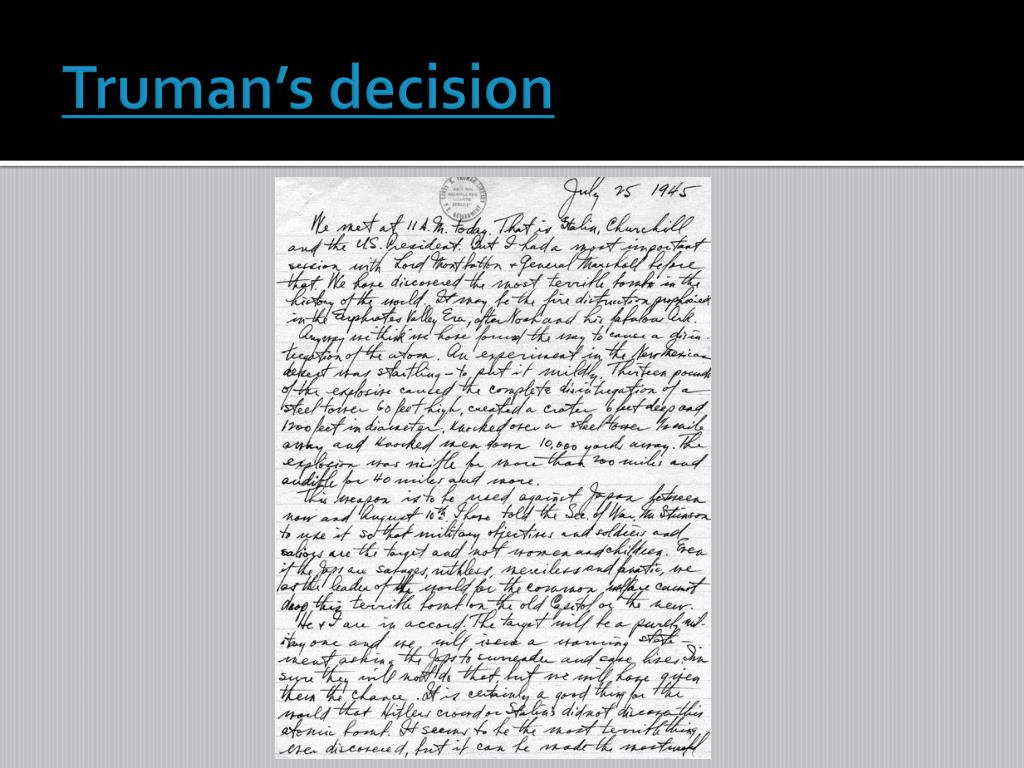 Truman's decision
July 25 1945
We met at 11 A.M. today. That is Stalin, Churchill
and the U.S. President. But I had a most important
session with Lord Mountbatten & General Marshall before
that. We have discovered the most terrible bomb in the
history of the world. It may be the fire distruction prophesied
in the Euphrates Valley Era, after Noah and his fabulous Ark.
Anyway we think we have found the way to cause a disin-
tegration of the atom. An experiment in the New Mexican
desert was startling - to put it mildly. Thirteen pounds
of the explosive caused the complete disintegration of a
steel tower 60 feet high, created a crater 6 feet deep and
1200 feet in diameter, knocked over a steel tower 1/2 mile
away and knocked men down 10,000 yards away. The
explosion was visible for more than 200 miles and
audible for 40 miles and more.
This weapon is to be used against Japan between
now and August 10th. I have told the Sec. of War, Mr. Stimson
to use it so that military objectives and soldiers and
sailors are the target and not women and children. Even
if the Japs are savages, ruthless, merciless and fanatic, we
as the leader of the world for the common welfare cannot
drop this terrible bomb on the old Capitol or the new.
He & I are in accord. The target will be a purely mil-
itary one and we will issue a warning state-
ment, asking the Japs to surrender and save lives. I'm
sure they will not do that, but we will have given
them the chance. It is certainly a good thing for the
world that Hitler's crowd or Stalin's did not discover this
atomic bomb. It seems to be the most terrible thing
ever discovered, but it can be made the most useful